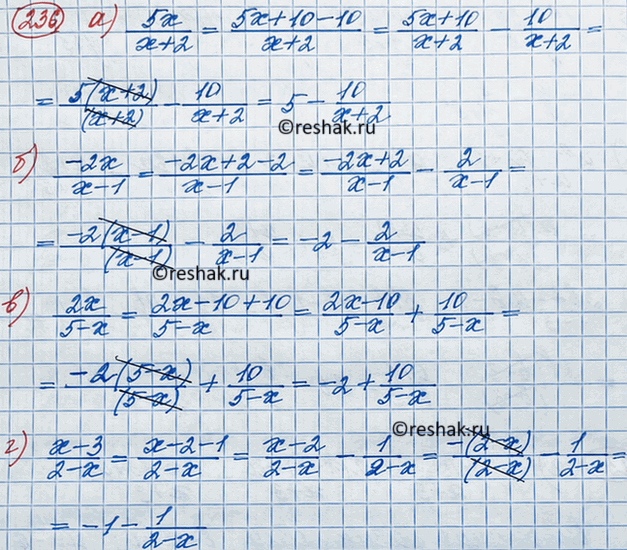 236 а) 5x/(x+2) = (5x+10-10)/(x+2) = (5x+10)/(x+2) - 10/(x+2) =
= 5(x+2)/(x+2) - 10/(x+2) = 5 - 10/(x+2)
©reshak.ru
б) -2x/(x-1) = (-2x+2-2)/(x-1) = (-2x+2)/(x-1) - 2/(x-1) =
= -2(x-1)/(x-1) - 2/(x-1) = -2 - 2/(x-1)
©reshak.ru
в) 2x/(5-x) = (2x-10+10)/(5-x) = (2x-10)/(5-x) + 10/(5-x) =
= -2(5-x)/(5-x) + 10/(5-x) = -2 + 10/(5-x)
©reshak.ru
г) (x-3)/(2-x) = (x-2-1)/(2-x) = (x-2)/(2-x) - 1/(2-x) = -(2-x)/(2-x) - 1/(2-x) =
= -1 - 1/(2-x)